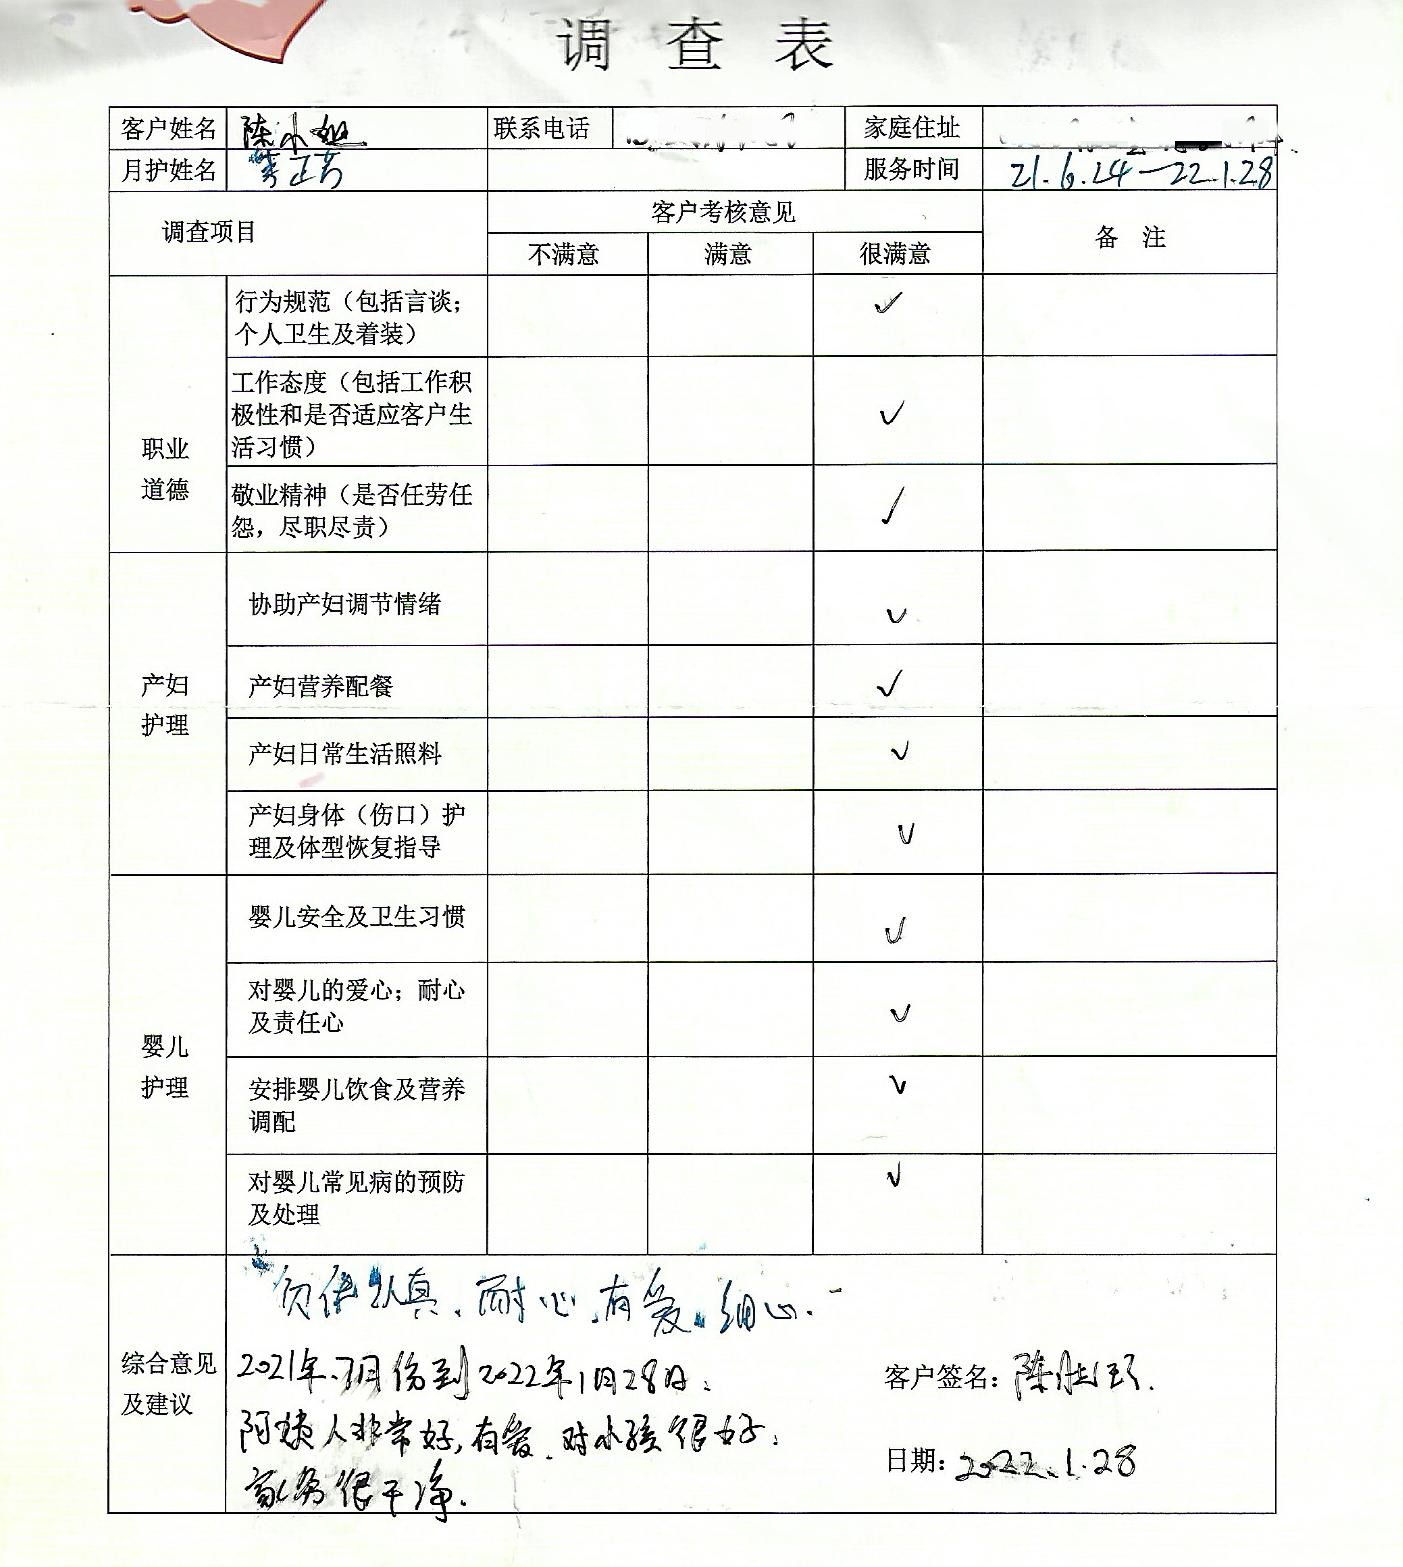 调查表
客户姓名 陈小姐 联系电话 家庭住址
月护姓名 正芳 服务时间 21.6.24—22.1.28
调查项目 客户考核意见 备 注
不满意 满意 很满意
职业
道德
行为规范（包括言谈；
个人卫生及着装） ✓
工作态度（包括工作积
极性和是否适应客户生
活习惯） ✓
敬业精神（是否任劳任
怨，尽职尽责） ✓
产妇
护理
协助产妇调节情绪 ✓
产妇营养配餐 ✓
产妇日常生活照料 ✓
产妇身体（伤口）护
理及体型恢复指导 ✓
婴儿
护理
婴儿安全及卫生习惯 ✓
对婴儿的爱心；耐心
及责任心 ✓
安排婴儿饮食及营养
调配 ✓
对婴儿常见病的预防
及处理 ✓
综合意见
及建议
认真、耐心、有爱、细心.
2021年.7月份到2022年1月28日.
阿姨人非常好,有爱.对小孩很好.
家务很干净.
客户签名：陈
日期：2022.1.28